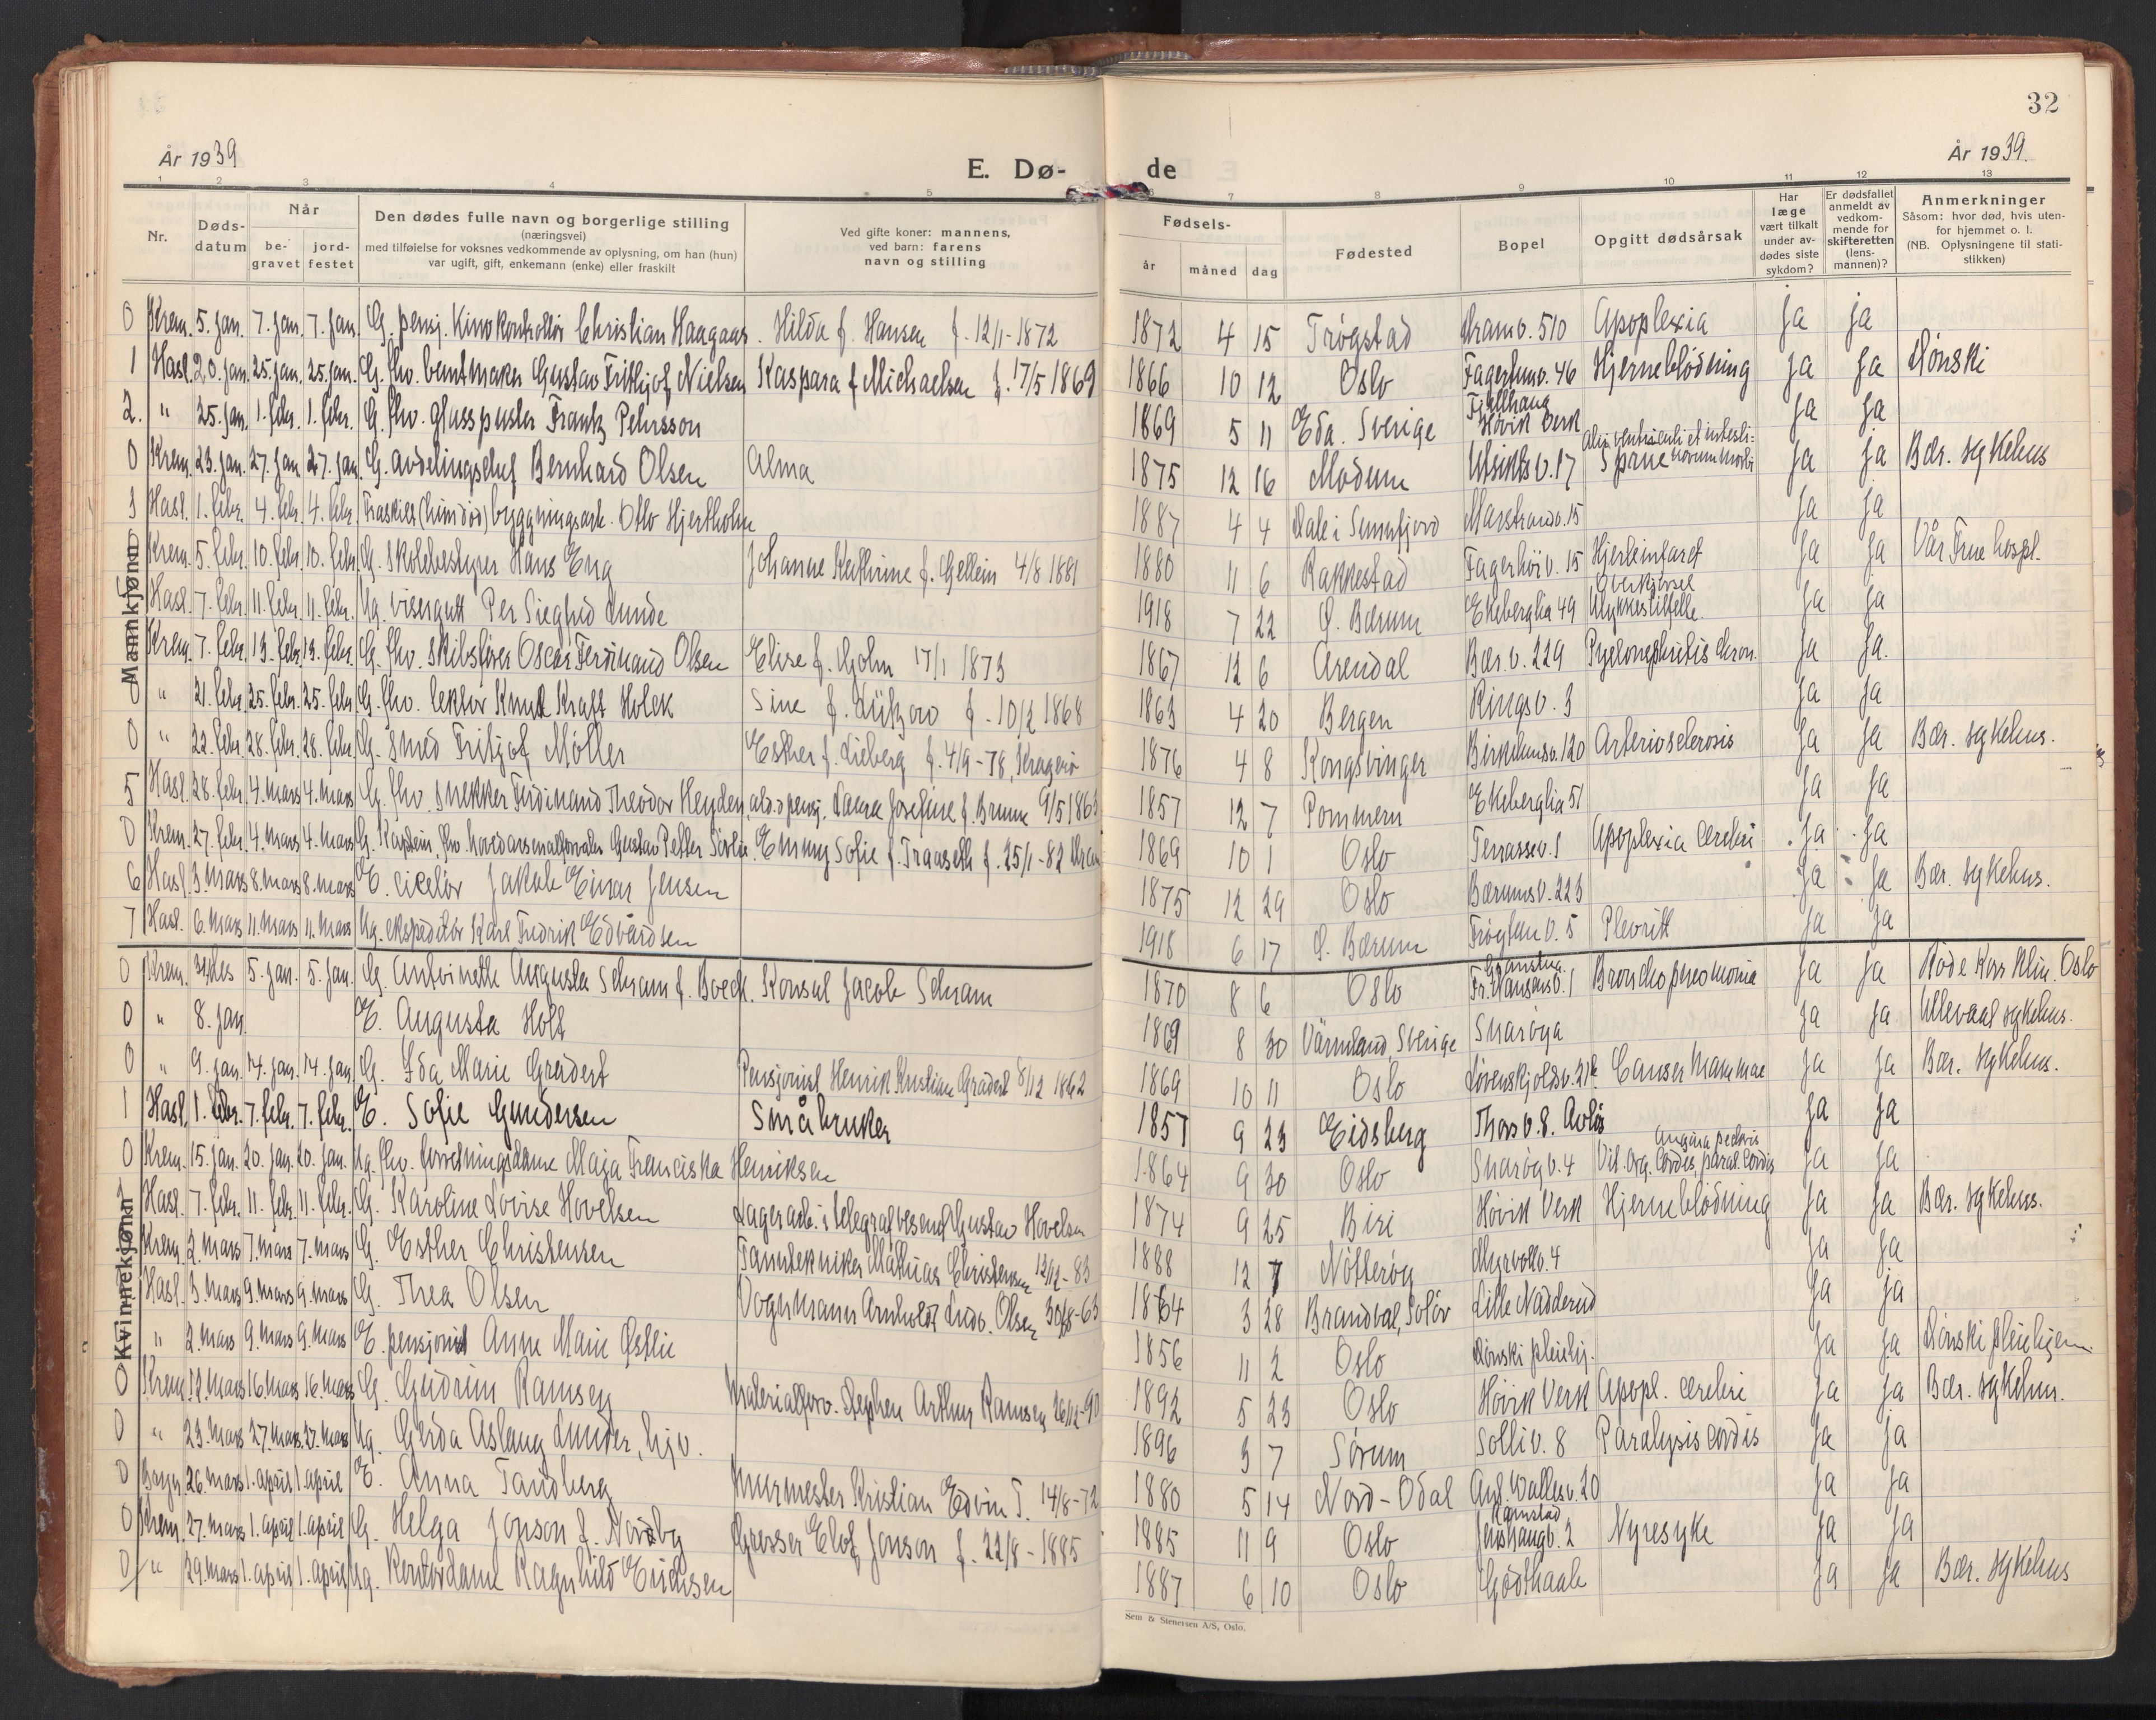 32
År 1939
E. Dø-
de
År 1939.
1 2 3 4 5 6 7 8 9 10 11 12 13
Nr.
Døds-
datum
Når
be-
gravet
jord-
festet
Den dødes fulle navn og borgerlige stilling
(næringsvei)
med tilføielse for voksnes vedkommende av oplysning, om han (hun)
var ugift, gift, enkemann (enke) eller fraskilt
Ved gifte koner: mannens,
ved barn: farens
navn og stilling
Fødsels-
år
måned
dag
Fødested
Bopel
Opgitt dødsårsak
Har
læge
vært tilkalt
under av-
dødes siste
sykdom?
Er dødsfallet
anmeldt av
vedkom-
mende for
skifteretten
(lens-
mannen)?
Anmerkninger
Såsom: hvor død, hvis uten-
for hjemmet o. l.
(NB. Oplysningene til stati-
stikken)
Mannkjønn
0 Krem. 5. jan. 7. jan. 7. jan. G. pensj. Kinokontrollør Christian Haagaas. Hilda f. Hansen f. 12/1-1872 1872 4 15 Trøgstad Dramv. 510 Apoplexia ja ja
1 Hasl. 20. jan. 25. jan. 25. jan. G. fhv. buntmaker Gustav Frithjof Nielsen Kaspara f Michaelsen f. 17/5 1869 1866 10 12 Oslo Fagerlundv. 46 Hjerneblødning ja ja Dønski
2. " 25. jan. 1. febr. 1. febr. G. fhv. glasspuster Frantz Petersson 1869 5 11 Eda. Sverige Fjellhaug Høvik Verk ja ja
0 Krem. 23. jan. 27. jan. 27. jan. G. avdelingschef Bernhard Olsen Alma 1875 12 16 Modum Utsiktsv. 17 ventriculi et intesti- Sprue ja ja Bær. sykehus
3 Hasl. 1. febr. 4. febr. 4. febr. Fraskilt byggningsark. Otto Hjertholm 1887 4 4 Dale i Sunnfjord Marstrandv. 15 ja ja
0 Krem. 5. febr. 10. febr. 10. febr. G. skolebestyrer Hans Eng Johanne Kathrine f. Gellein 4/8 1881 1880 11 6 Rakkestad Fagerhøiv. 15 Hjerteinfarct ja ja Vår Frue hospl.
Hasl. 7. febr. 11. febr. 11. febr. Ug. visergutt Per Siegfred Lunde 1918 7 22 Ø. Bærum Ekeberglia 49 Overkjørsel Ulykkestilfelle. ja ja
Krem. 7. febr. 13. febr. 13. febr. G. fhv. skibsfører Oscar Ferdinand Olsen Elise f. Holm 17/1 1873 1867 12 6 Arendal Bær. v. 229 Pyelonephritis chron. ja ja.
" 21. febr. 25. febr. 25. febr. G. fhv. lektor Knut Kraft Holck Sine f. Lützow f. 10/2 1868 1863 4 20 Bergen Ringsv. 3 ja ja
0 " 22. febr. 28. febr. 28. febr. G. smed Fritjof Møller Esther f. Lieberg f. 4/9-78, Kragerø 1876 4 8 Kongsvinger Birkelundv. 120 Arteriosclerosis ja ja Bær. sykehus.
5 Hasl. 28. febr. 4. mars 4. mars G. fhv. snekker Ferdinand Theodor Heyden, ald. pensj. Laura Josefine f. Bruun 9/5 1863 1857 12 7 Pommern Ekeberglia 51 ja ja
0 Krem. 27. febr. 4. mars 4. mars G. Kaptein, fhv. hovedarsenalforvalter Gustav Petter Sørlie. Emmy Sofie f. Traaseth f. 25/1-82 1869 10 1 Oslo Terrassev. 1 Apoplexia cerebri ja ja
6 Hasl. 3. mars 8. mars 8. mars E. ciselør Jakob Einar Jensen 1875 12 29 Oslo Bærumsv. 223 ja ja Bær. sykehus.
7 Hasl. 6. mars 11. mars 11. mars Ug. ekspeditør Karl Fredrik Edvardsen 1918 6 17 Ø. Bærum Frøytun v. 5 Plevritt ja ja
Kvinnekjønn
0 Krem. 31/des 5. jan. 5. jan. G. Antoinette Augusta Schram f. Boeck. Konsul Jacob Schram 1870 8 6 Oslo Granstua Fr. Nansensv. 1 Bronchopneomonia ja ja Røde Kors Klin. Oslo
0 " 8. jan. E. Augusta Holt 1869 8 30 Värmland, Sverige Snarøya ja ja Ullevaal sykehus.
0 " 9. jan. 14. jan. 14. jan. G. Ida Marie Gradert Pensjonist Henrik Kristian Gradert 8/12 1862 1869 10 11 Oslo Løvenskjoldsv. 21b Canser Mammae ja ja Bær. sykehus.
1 Hasl. 1. febr. 7. febr. 7. febr. E. Sofie Gundersen Småbruker 1857 9 23 Eidsberg Thors v. 8. Avløs ja ja
0 Krem. 15. jan. 20. jan. 20. jan. Ug. fhv. forretningsdame Maja Franciska Henriksen 1864 9 30 Oslo Snarøyv. 4 Vit. org. cordis, paral. cordis Angina pectoris ja ja
Hasl. 7. febr. 11. febr. 11. febr. G. Karoline Lovise Hovelsen Lagerarb. i telegrafvesenet Gustav Hovelsen 1874 9 25 Biri Høvik Verk Hjerneblødning ja ja Bær. sykehus.
Krem. 2. mars 7. mars 7. mars G. Esther Christensen Tanntekniker Mathias Christensen 12/12-83 1888 12 7 Nøtterøy Myrvollv. 4 ja ja
Hasl. 3. mars 9. mars 9. mars G. Thea Olsen Vognmann Arnholdt Ludv. Olsen 30/8-63 1864 3 28 Brandval, Solør Lille Nadderud ja ja
" 2. mars 9. mars 9. mars E. pensjonist Anne Marie Østlie 1856 11 2 Oslo Dønski pleiehj. ja ja Dønski pleiehjem.
0 Krem. 12. mars 16. mars 16. mars G. Gudrun Ramsey Materialforv. Stephen Arthur Ramsey 26/12-90 1892 5 23 Oslo Høvik Verk Apopl. cerebri ja ja Bær. sykehus.
0 " 23. mars 27. mars. 27. mars Ug. Gerda Aslaug Lunder, hjv. 1896 3 7 Sørum Solliv. 8 Paralysis cordis ja ja
0 26. mars 1. april 1. april E. Anna Tandberg Murmester Kristian Edvin T. 14/8-72 1880 5 14 Nord-Odal Ant. Wallesv. 20 ja ja
0 Krem. 27. mars 1. april 1. april G. Helga Jonson f. Nordby Grosser Elof Jonson f. 22/8-1885 1885 11 9 Oslo Ramstad 2 Nyresyke ja ja
0 " 29. mars 1. april 1. april Ug. Kontordame Ragnhild Erichsen 1887 6 10 Oslo Godthaab ja ja Bær. sykehus
Sem & Stenersen A/S, Oslo.